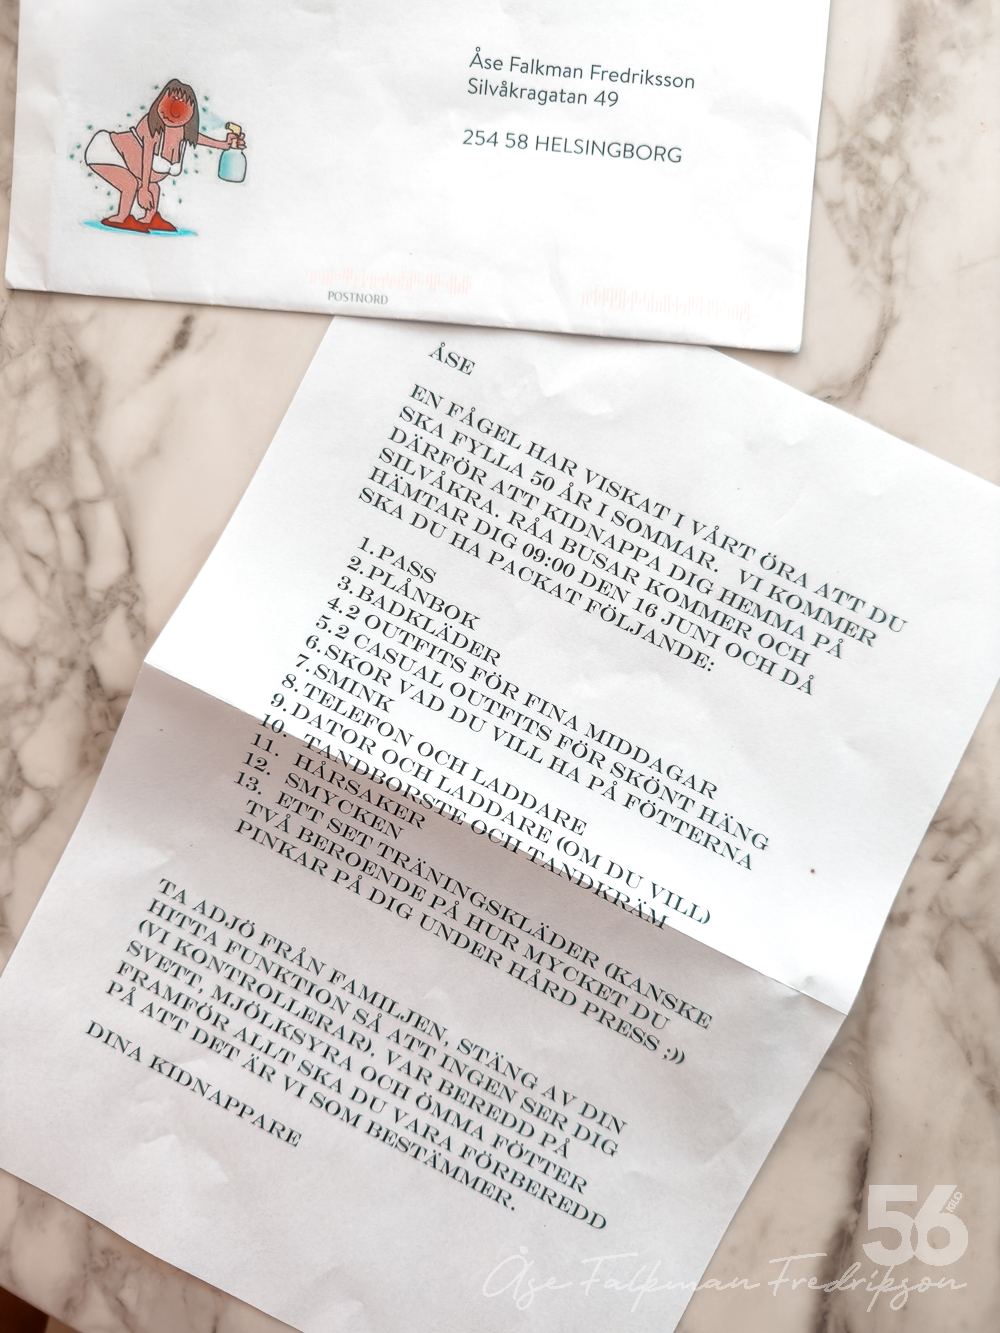 Åse Falkman Fredriksson
Silvåkragatan 49
254 58 HELSINGBORG
POSTNORD
ÅSE
EN FÅGEL HAR VISKAT I VÅRT ÖRA ATT DU
SKA FYLLA 50 ÅR I SOMMAR. VI KOMMER
DÄRFÖR ATT KIDNAPPA DIG HEMMA PÅ
SILVÅKRA. RÅA BUSAR KOMMER OCH
HÄMTAR DIG 09:00 DEN 16 JUNI OCH DÅ
SKA DU HA PACKAT FÖLJANDE:
1. PASS
2. PLÅNBOK
3. BADKLÄDER
4. 2 OUTFITS FÖR FINA MIDDAGAR
5. 2 CASUAL OUTFITS FÖR SKÖNT HÄNG
6. SKOR VAD DU VILL HA PÅ FÖTTERNA
7. SMINK
8. TELEFON OCH LADDARE
9. DATOR OCH LADDARE (OM DU VILL)
10. TANDBORSTE OCH TANDKRÄM
11. HÅRSAKER
12. SMYCKEN
13. ETT SET TRÄNINGSKLÄDER (KANSKE
TVÅ BEROENDE PÅ HUR MYCKET DU
PINKAR PÅ DIG UNDER HÅRD PRESS ;))
TA ADJÖ FRÅN FAMILJEN, STÄNG AV DIN
HITTA FUNKTION SÅ ATT INGEN SER DIG
(VI KONTROLLERAR). VAR BEREDD PÅ
SVETT, MJÖLKSYRA OCH ÖMMA FÖTTER
FRAMFÖR ALLT SKA DU VARA FÖRBEREDD
PÅ ATT DET ÄR VI SOM BESTÄMMER.
DINA KIDNAPPARE
56 KILO
Åse Falkman Fredrikson